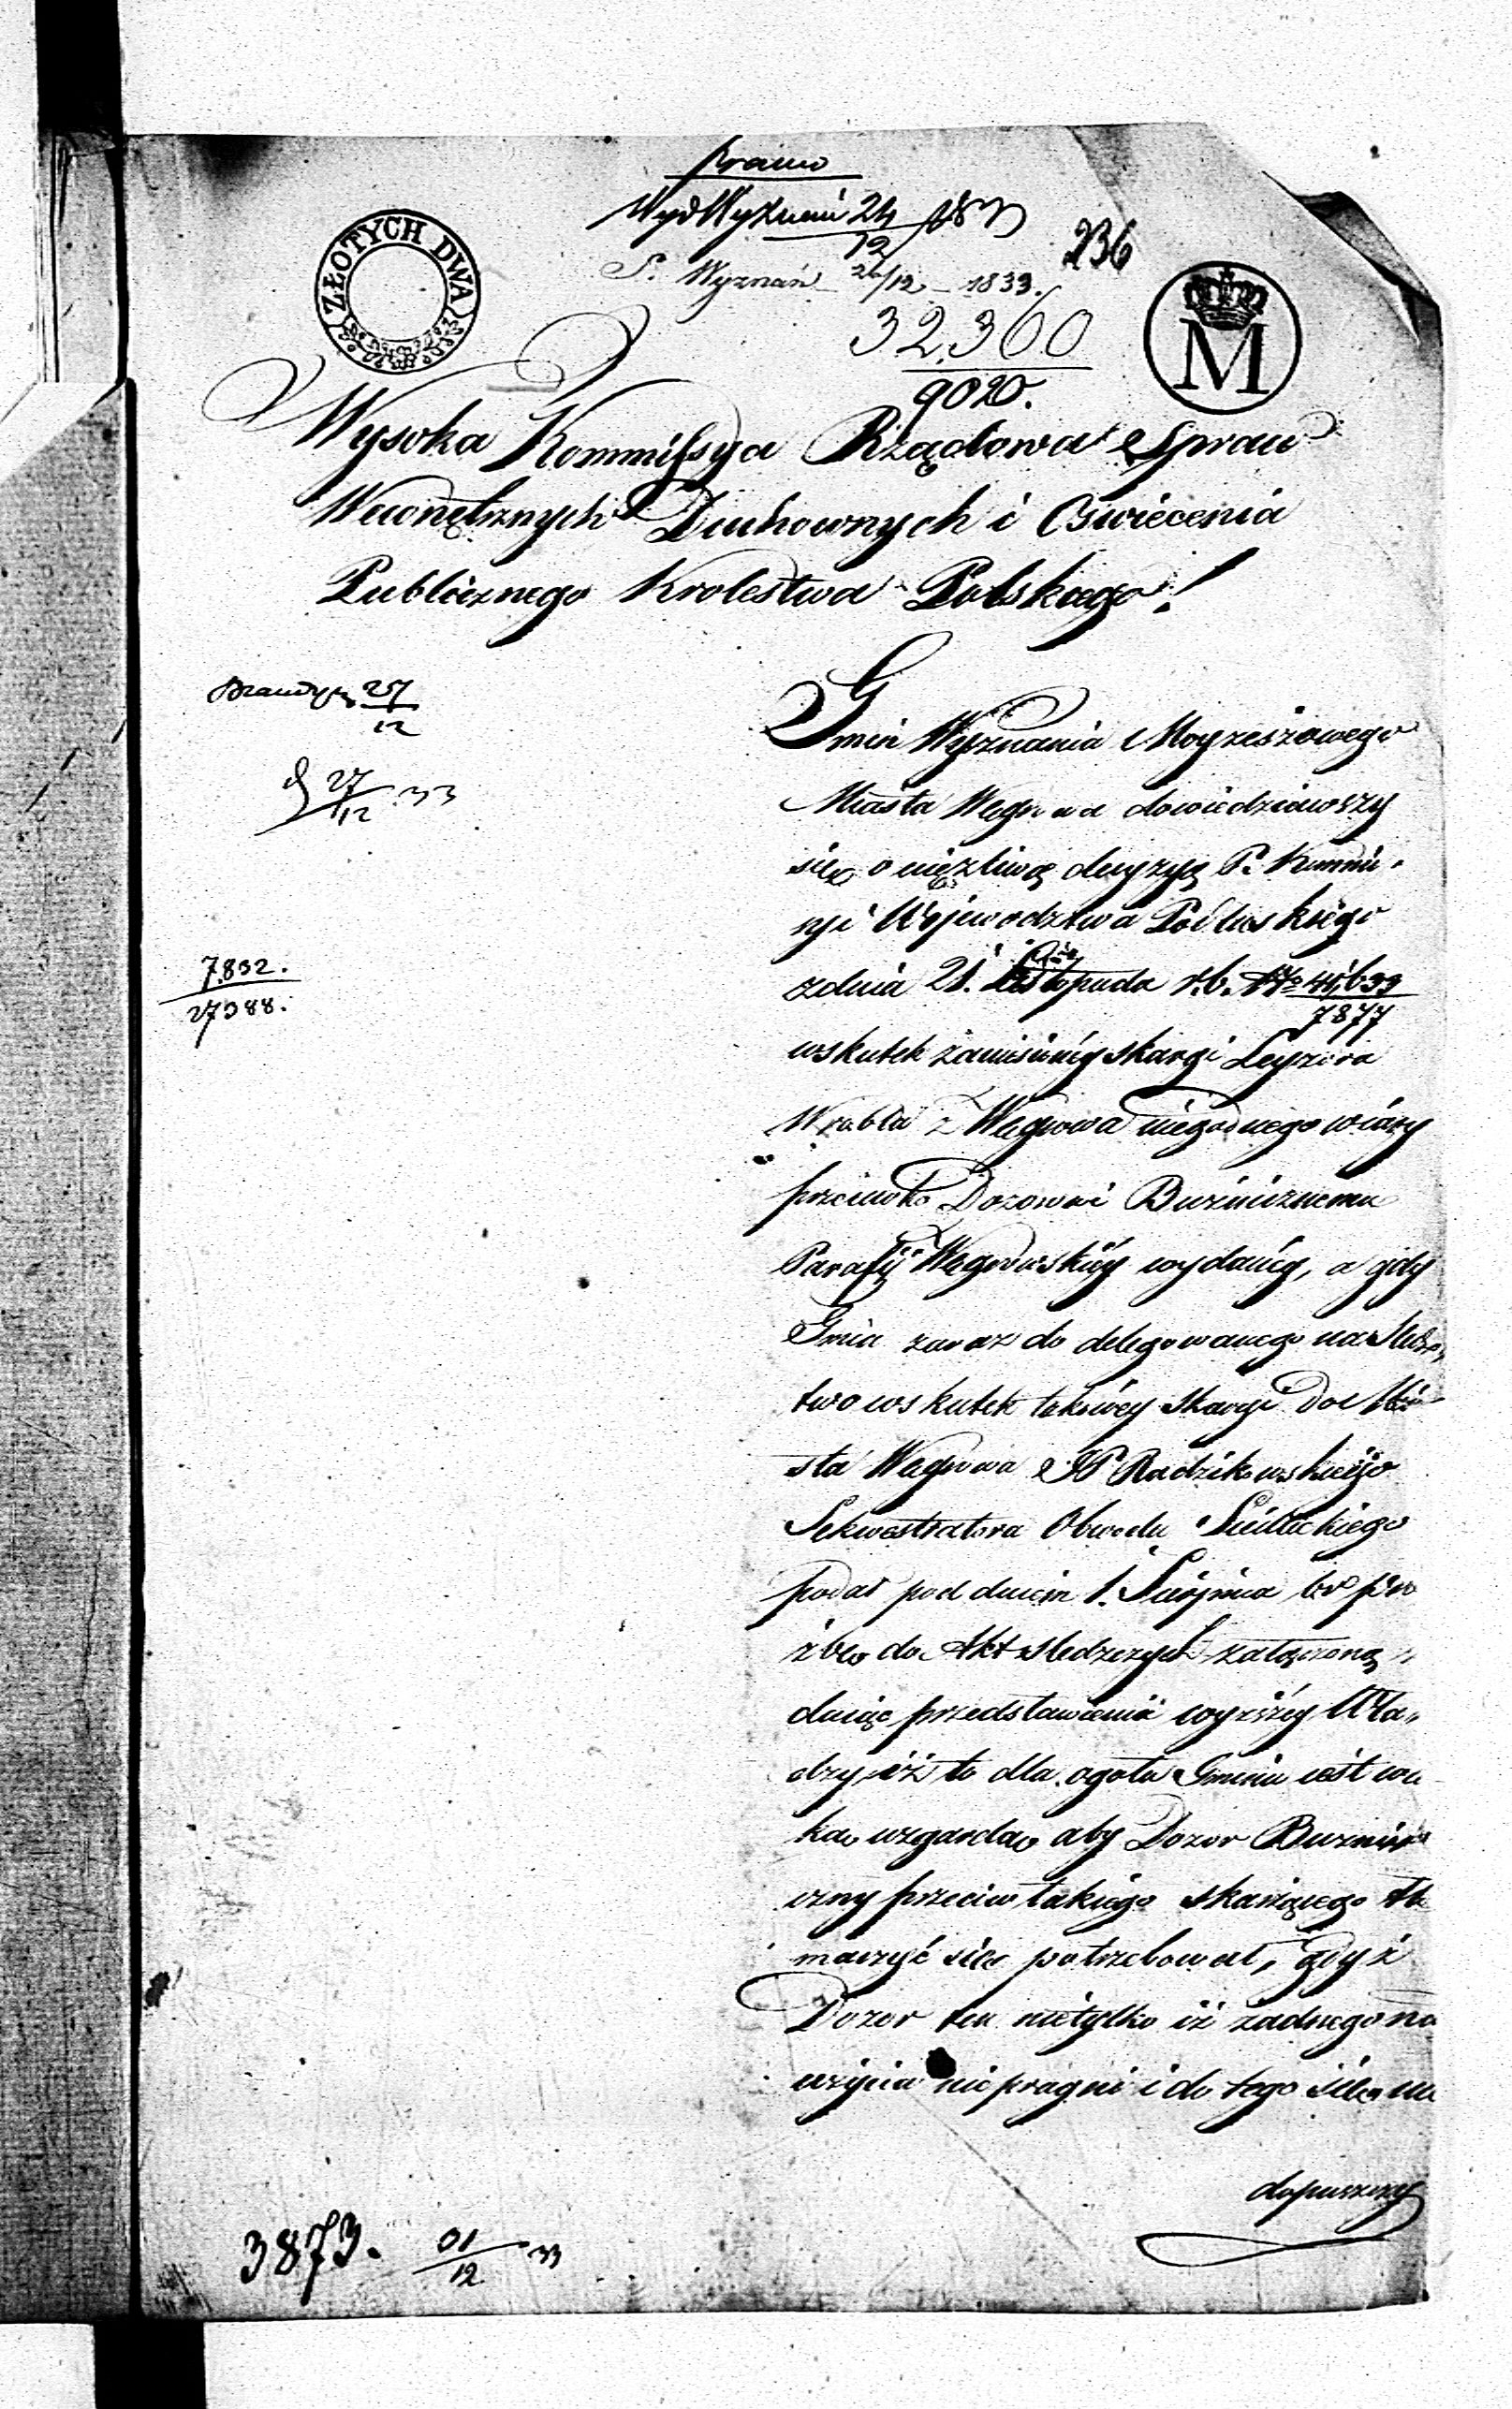 Prawo
24/12 1833
236
ZŁOTYCH DWA
S. Wyznań 24/12 1833.
M
32,360
9020.
Wysoka Kommissya Rządowa Spraw
Wewnętrznych Duchownych i Oświecenia
Publicznego Krolestwa Polskiego!
27/12
Gmin Wyznania Moyzeszowego
27/12 33
Miasta Węgrowa dowiedziawszy
się o decyzyą P. Kommis-
syi Wojewodztwa Podlaskiego
7.832.
27388.
z dnia 21. Listopada r.b. No 41,633
7877
wskutek zaniesioney skargi Leyzora
Wrobla z Węgrowa niegodnego wiary
przeciwko Dozorowi Bużnicznemu
Parafij Węgrowskiey wydaney, a gdy
Gmin zaraz do delegowanego na Sledz-
two wskutek takowey skargi Do Mia-
sta Węgrowa JP Radzikowskiego
Sekwestratora Obwodu Siedleckiego
podał pod dniem 1. Sierpnia br proz
zbę do Akt sledzczych załączoną
przedstawienia wyższey Wła-
dzy iż to dla ogołu Gminu iest
wzgarda aby Dozor Bużni
czny przeciw takiego skarżącego tło
maczyć się potrzebował, gdyż
Dozor ten nietylko iż żadnego na
użycia nie pragnie i do tego się nie
dopuszczy
3873. 31/12 33